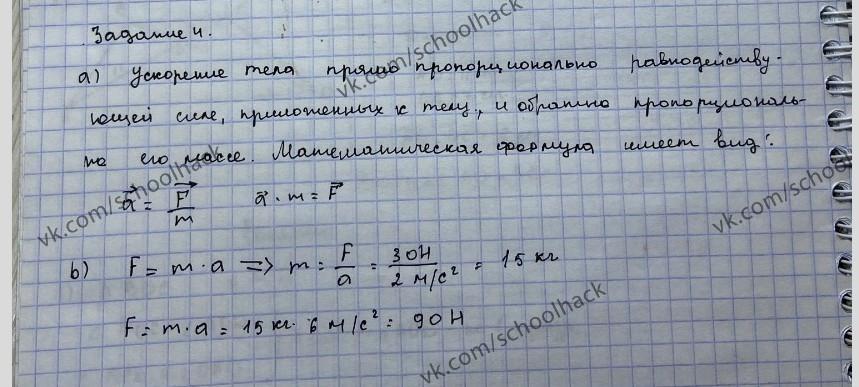 Задание 4.
а) Ускорение тела прямо пропорционально равнодейству-
ющей силе, приложенных к телу, и обратно пропорциональ-
но его массе. Математическая формула имеет вид:
a⃗ = F⃗/m a⃗ · m = F⃗
b) F = m · a => m = F/a = 30Н/2 м/с² = 15 кг
F = m · a = 15 кг · 6 м/с² = 90 Н
vk.com/schoolhack
vk.com/schoolhack
vk.com/schoolhack
vk.com/schoolhack